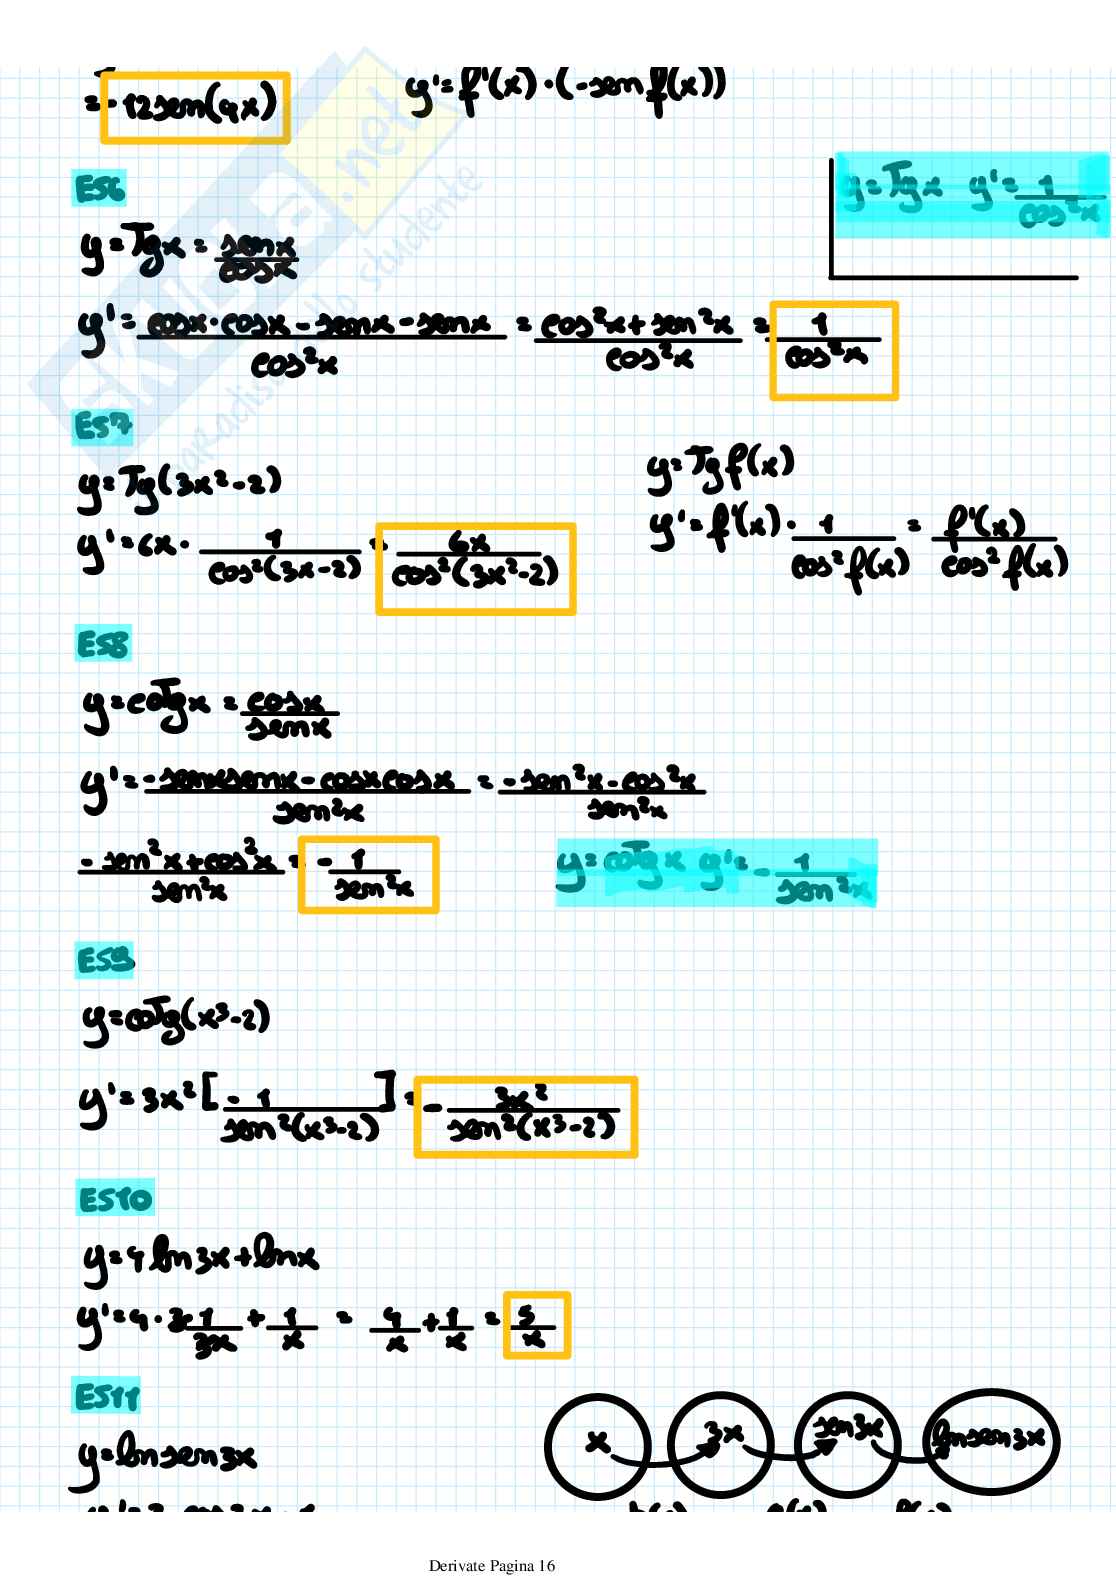 = -12sen(4x)
y' = f'(x) · (-sen f(x))
ES6
y = Tgx y' = 1/cos²x
y = Tgx = senx/cosx
y' = cosx · cosx - senx - senx/cos²x = cos²x + sen²x/cos²x = 1/cos²x
ES7
y = Tg(3x²-2)
y = Tg f(x)
y' = 6x · 1/cos²(3x-2) = 6x/cos²(3x²-2)
y' = f'(x) · 1/cos² f(x) = f'(x)/cos² f(x)
ES8
y = coTgx = cosx/senx
y' = -senxsenx - cosxcosx/sen²x = -sen²x - cos²x/sen²x
-sen²x + cos²x/sen²x = -1/sen²x
y = coTgx y' = -1/sen²x
ES9
y = coTg(x³-2)
y' = 3x² [-1/sen²(x³-2)] = -3x²/sen²(x³-2)
ES10
y = 4 ln3x + lnx
y' = 4 · 3 1/3x + 1/x = 4/x + 1/x = 5/x
ES11
y = lnsen3x
x 3x sen3x lnsen3x
SKUOLA.net
paradiso dello studente
Derivate Pagina 16